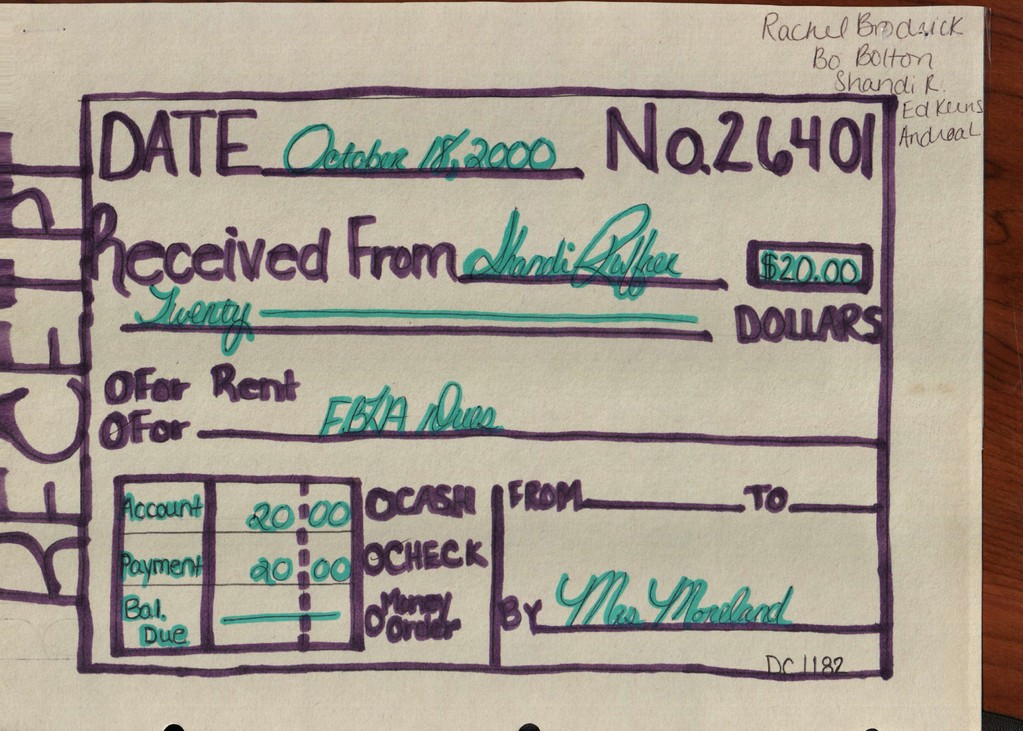 Rachel Brodrick
Bo Bolton
Shandi R.
Ed Kerns
Andrea L
RECEIPT
DATE October 18, 2000 No. 26401
Received From Shandi $20.00
Twenty DOLLARS
O For Rent
O For FBLA Dues
Account 20 00
Payment 20 00
Bal. Due
O CASH
O CHECK
O Money Order
FROM TO
BY Mrs Moreland
DC1182